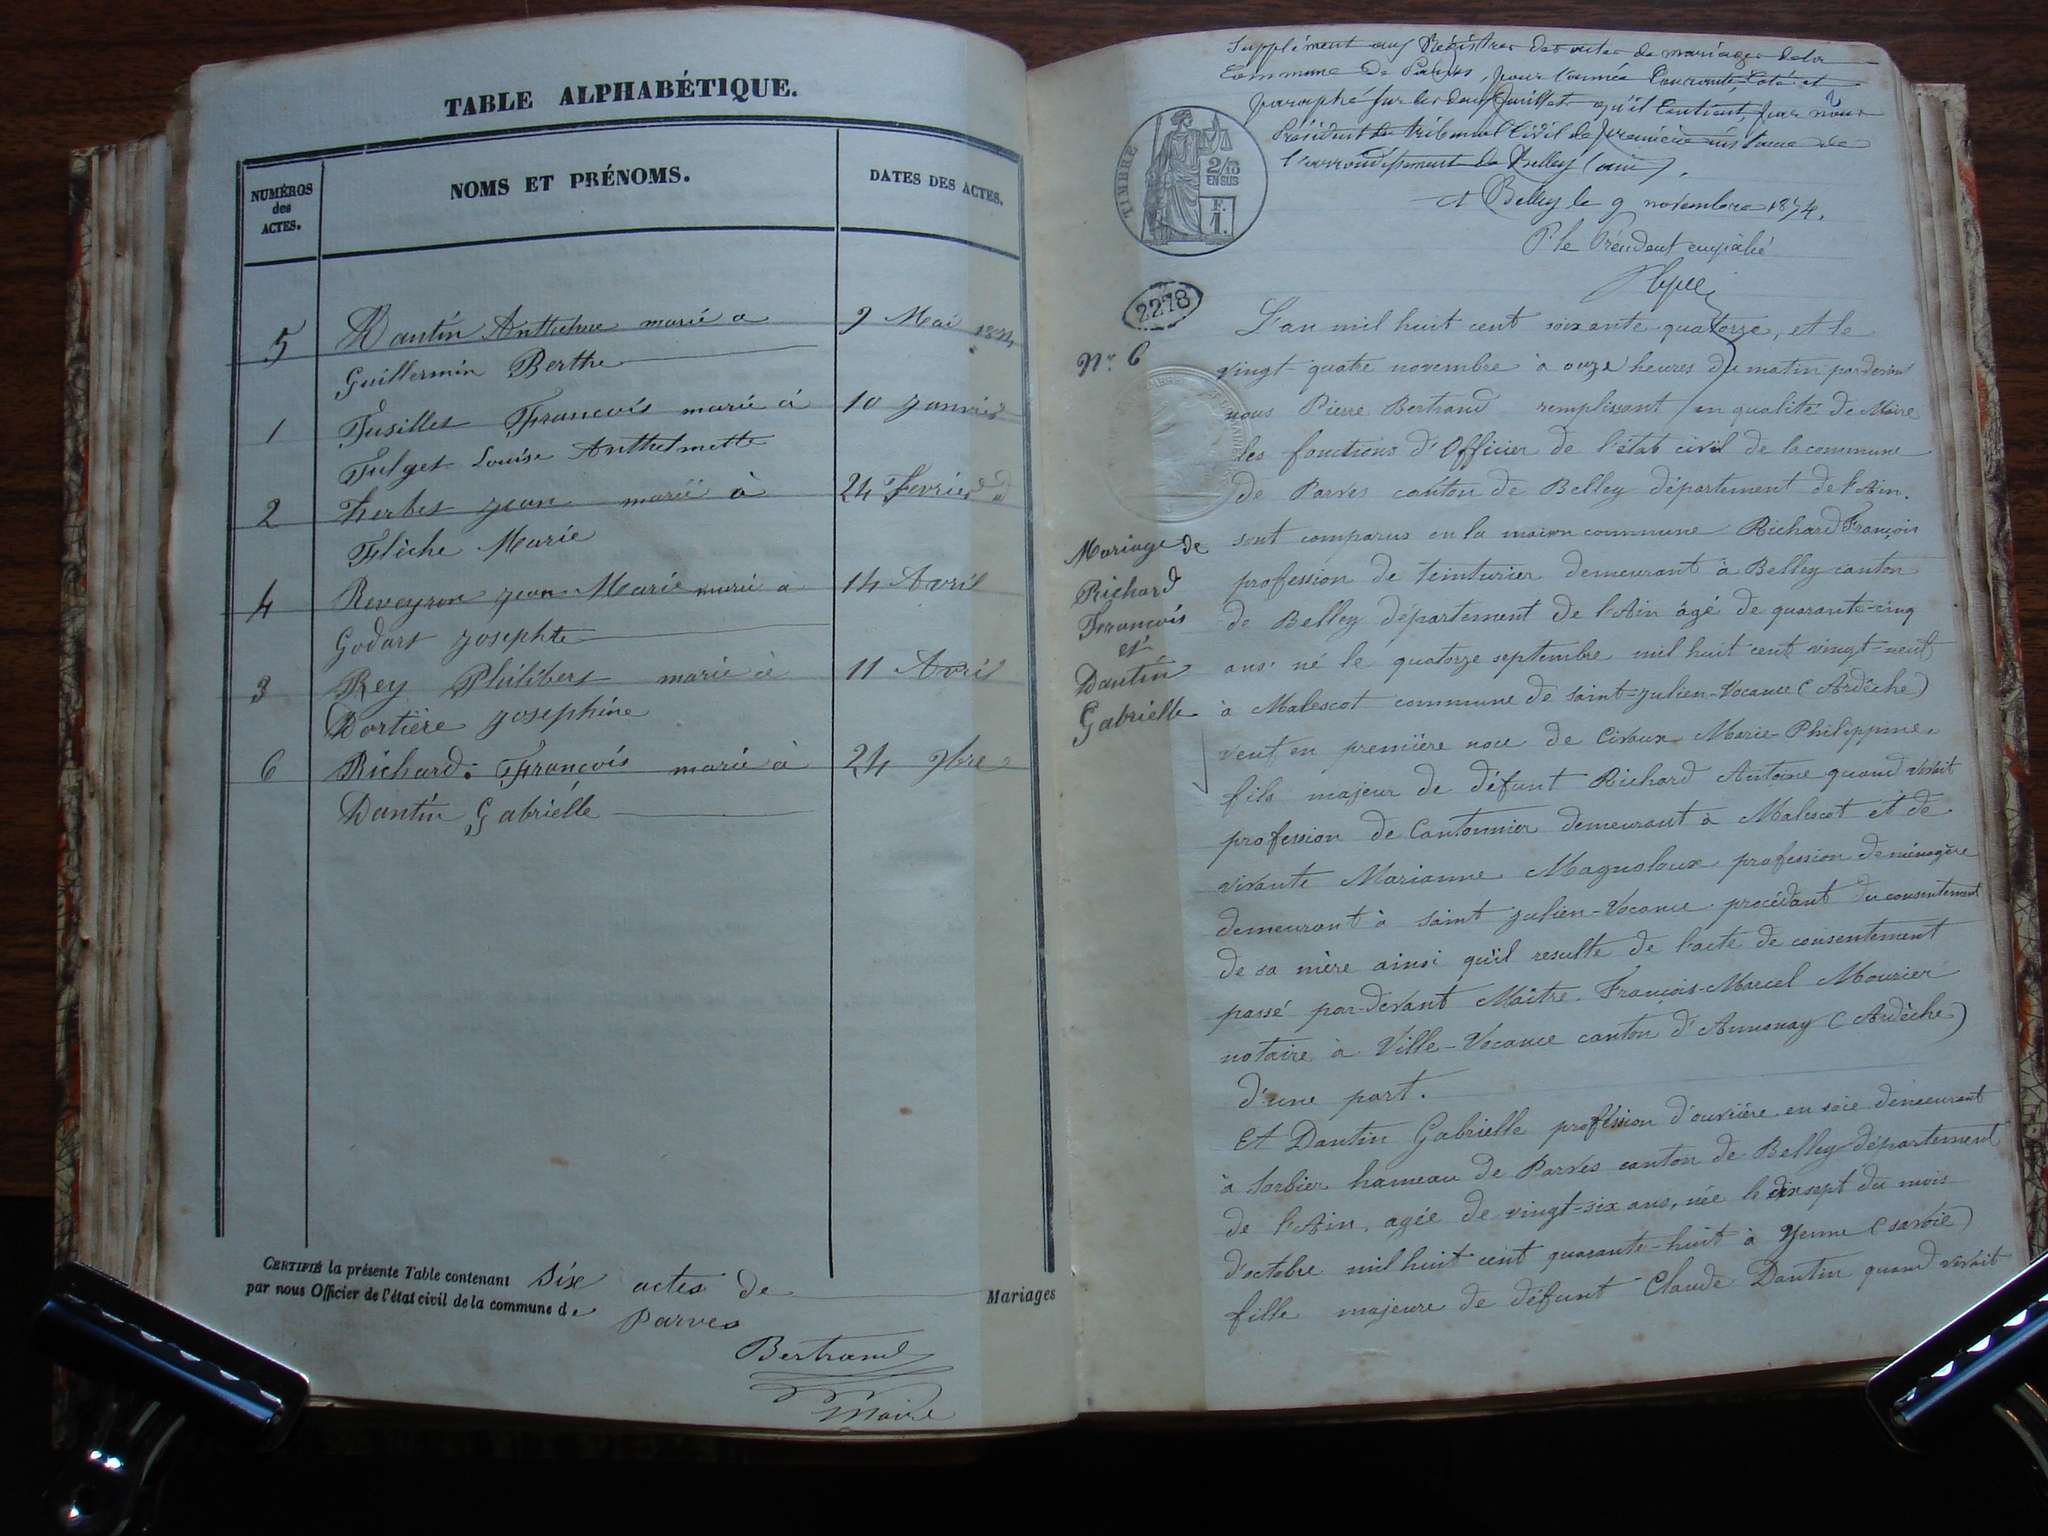 TABLE ALPHABÉTIQUE.
NUMÉROS des ACTES.
NOMS ET PRÉNOMS.
DATES DES ACTES.
5 Dantin Anthelme marié a 9 Mai 1874
Guillermin Berthe
1 Fusillet François marié à 10 Janvier
Fulget Louise Anthelmette
2 Herbet Jean marié à 24 Fevrier
Flèche Marie
4 Reveyron Jean-Marie marié à 14 Avril
Godart Josephte
3 Rey Philibert marié à 11 Avril
Dortière Josephine
6 Richard François marié à 24 9bre
Dantin Gabrielle
CERTIFIÉ la présente Table contenant six actes de Mariages
par nous Officier de l'état civil de la commune de Parves
Bertrand
Maire
Supplément aux Régistres des actes de mariages de la
Commune de Parves, pour l'année Courante, Coté et
paraphé sur les deux feuillets qu'il Contient, par nous
Président du tribunal Civil de première instance de
l'arrondissement de Belley (ain).
A Belley le 9 novembre 1874.
Pr le Président empêché
TIMBRE
2/10
EN SUS
F.
1.
2278
N° 6
Mariage de
Richard
François
et
Dantin
Gabrielle
L'an mil huit cent soixante quatorze, et le
vingt-quatre novembre à onze heures du matin pardevant
nous Pierre Bertrand remplissant en qualité de Maire
les fonctions d'Officier de l'état civil de la commune
de Parves canton de Belley département de l'Ain.
sont comparus en la maison commune Richard François
profession de teinturier demeurant à Belley canton
de Belley département de l'Ain âgé de quarante-cinq
ans né le quatorze septembre mil huit cent vingt-neuf
à Malescot commune de Saint-Julien-Vocance (Ardèche)
veuf en première noce de Marie-Philippine,
fils majeur de défunt Richard Antoine quand vivait
profession de Cantonnier demeurant à Malescot et de
vivante Marianne Magnoloux profession de ménagère
demeurant à Saint Julien-Vocance procédant du consentement
de sa mère ainsi qu'il resulte de l'acte de consentement
passé par-devant Maître François-Marcel Mourier
notaire à Ville-Vocance canton d'Annonay (Ardèche)
d'une part.
Et Dantin Gabrielle profession d'ouvrière en soie demeurant
à Sorbier hameau de Parves canton de Belley département
de l'Ain, agée de vingt-six ans, née le dixsept du mois
d'octobre mil huit cent quarante-huit à Yenne (Savoie)
fille majeure de défunt Claude Dantin quand vivait